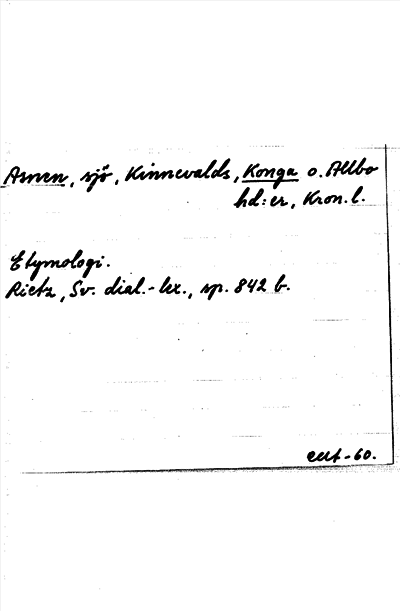 Åsnen, sjö, Kinnevalds, Konga o. Allbo
hd:er, Kron. l.
Etymologi.
Rietz, Sv. dial.-lex., sp. 842 b.